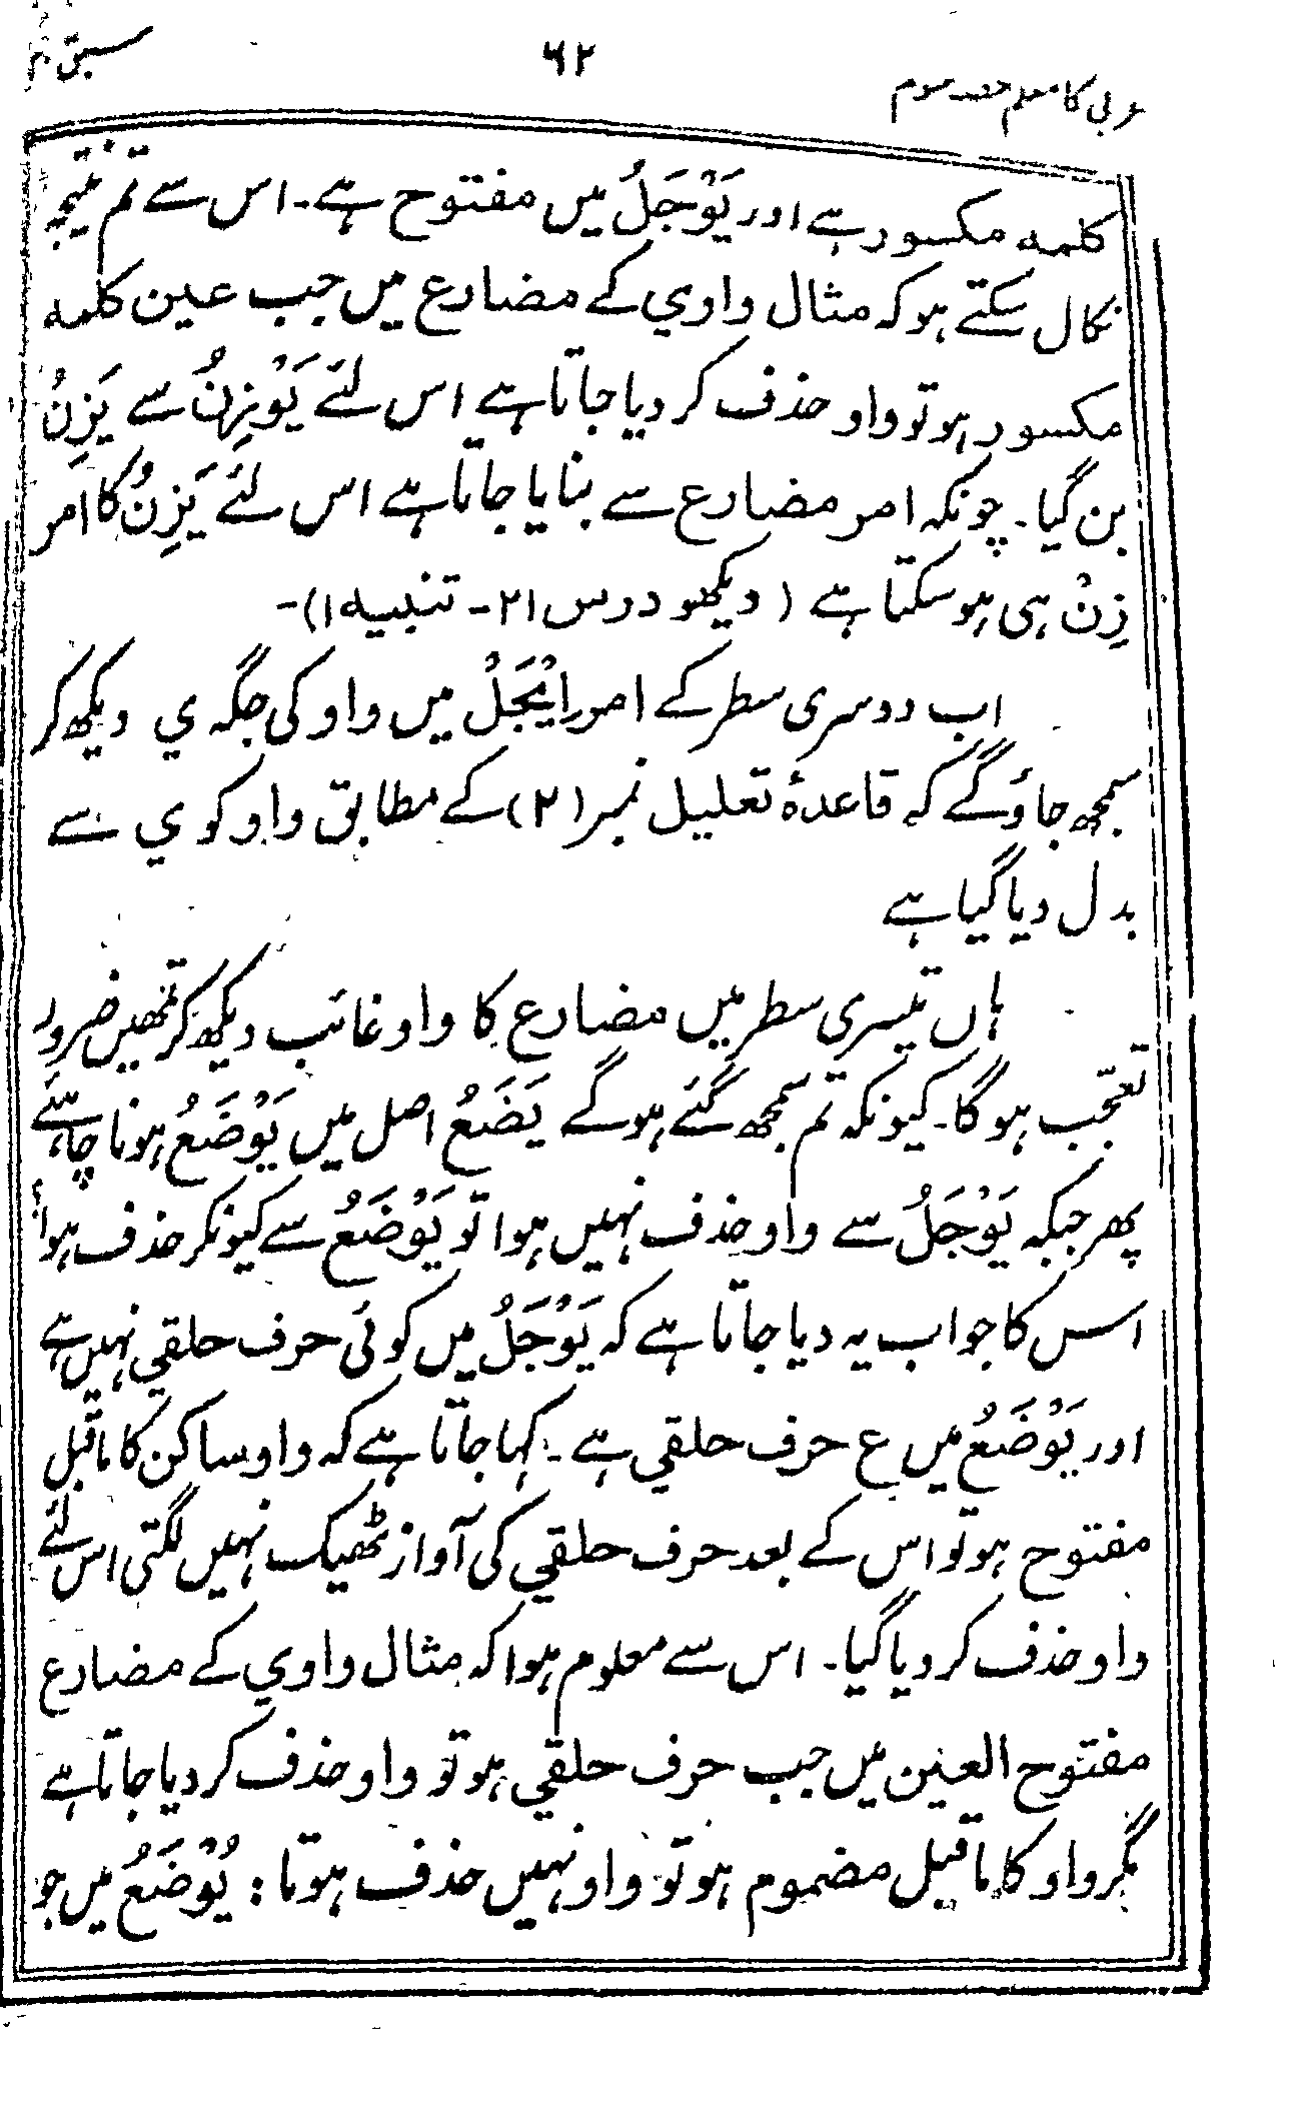 عربی کا معلم حصہ سوم
۶۲
سبق
کلمہ مکسور ہے اور یَوْجَلُ میں مفتوح ہے۔ اس سے تم نتیجہ
نکال سکتے ہو کہ مثال واوي کے مضارع میں جب عین کلمہ
مکسور ہو تو واو حذف کر دیا جاتا ہے اس لئے یَوْزِنُ سے یَزِنُ
بن گیا۔ چونکہ امر مضارع سے بنایا جاتا ہے اس لئے یَزِنُ کا امر
زِنْ ہی ہو سکتا ہے (دیکھو درس ۲۱- تنبیہ ۱)-
اب دوسری سطر کے امر اِیْجَلْ میں واو کی جگہ ي دیکھ کر
سمجھ جاؤ گے کہ قاعدۂ تعلیل نمبر (۲) کے مطابق واو کو ي سے
بدل دیا گیا ہے
ہاں تیسری سطر میں مضارع کا واو غائب دیکھ کر تمھیں ضرور
تعجّب ہوگا۔ کیونکہ تم سمجھ گئے ہوگے یَضَعُ اصل میں یَوْضَعُ ہونا چاہئے
پھر جبکہ یَوْجَلُ سے واو حذف نہیں ہوا تو یَوْضَعُ سے کیونکر حذف ہوا؟
اس کا جواب یہ دیا جاتا ہے کہ یَوْجَلُ میں کوئی حرف حلقي نہیں ہے
اور یَوْضَعُ میں ع حرف حلقي ہے۔ کہا جاتا ہے کہ واو ساکن کا ماقبل
مفتوح ہو تو اس کے بعد حرف حلقي کی آواز ٹھیک نہیں لگتی اس لئے
واو حذف کر دیا گیا۔ اس سے معلوم ہوا کہ مثال واوي کے مضارع
مفتوح العین میں جب حرف حلقي ہو تو واو حذف کر دیا جاتا ہے
مگر واو کا ماقبل مضموم ہو تو واو نہیں حذف ہوتا : یُوْضَعُ میں جو